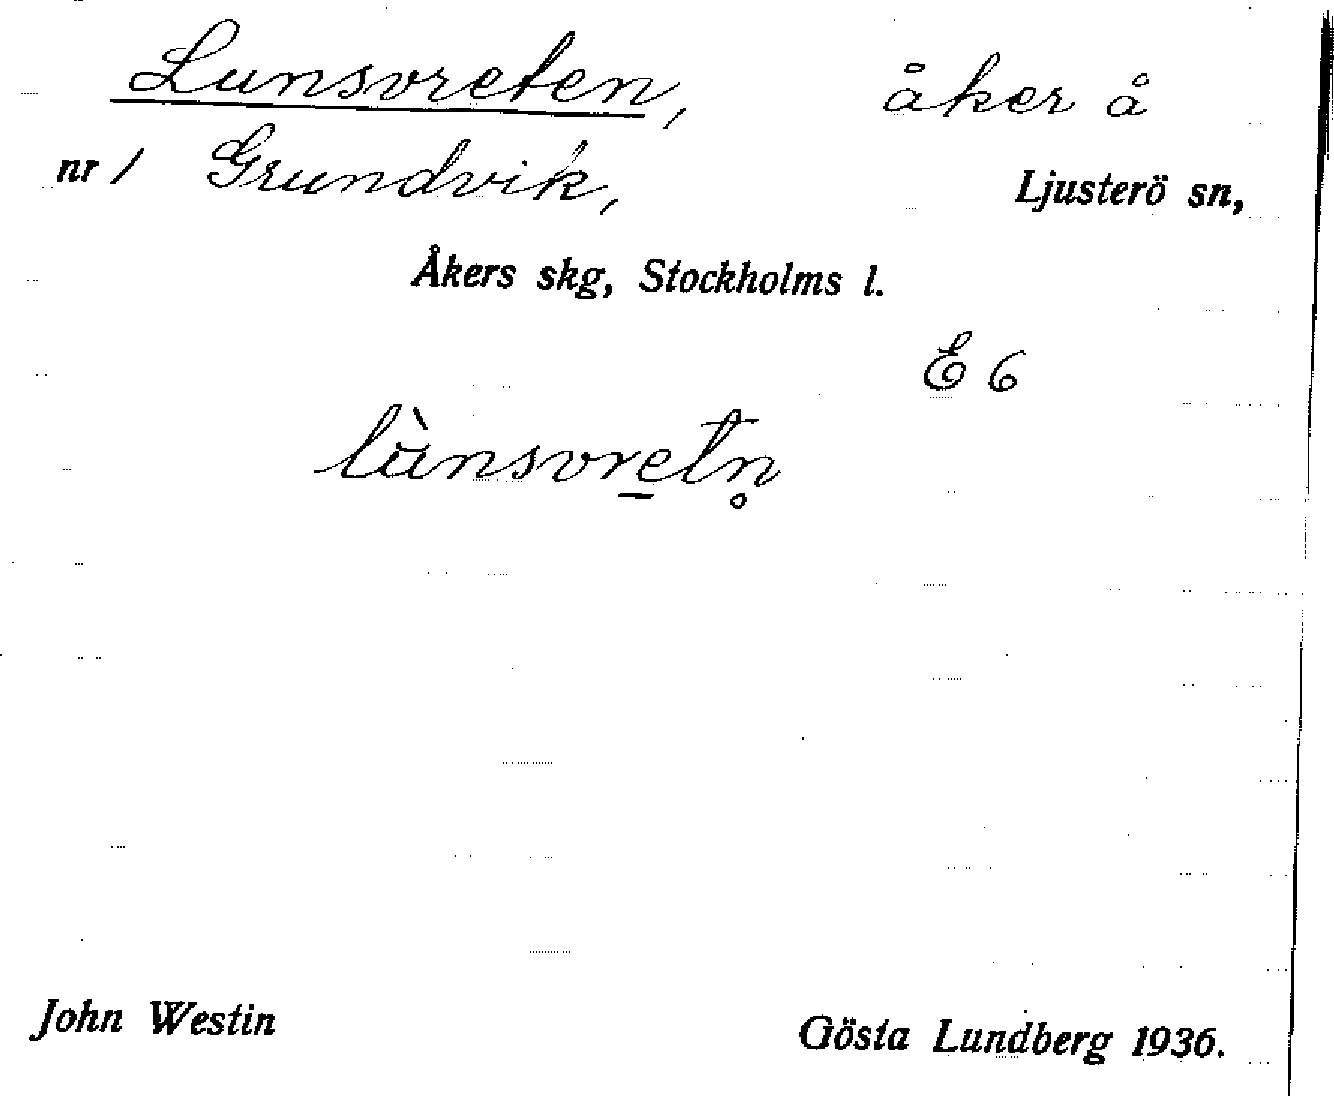 Lunsvreten, åker å
nr 1 Grundvik, Ljusterö sn,
Åkers skg, Stockholms l.
E 6
lùnsvre̲tn̥
John Westin Gösta Lundberg 1936.